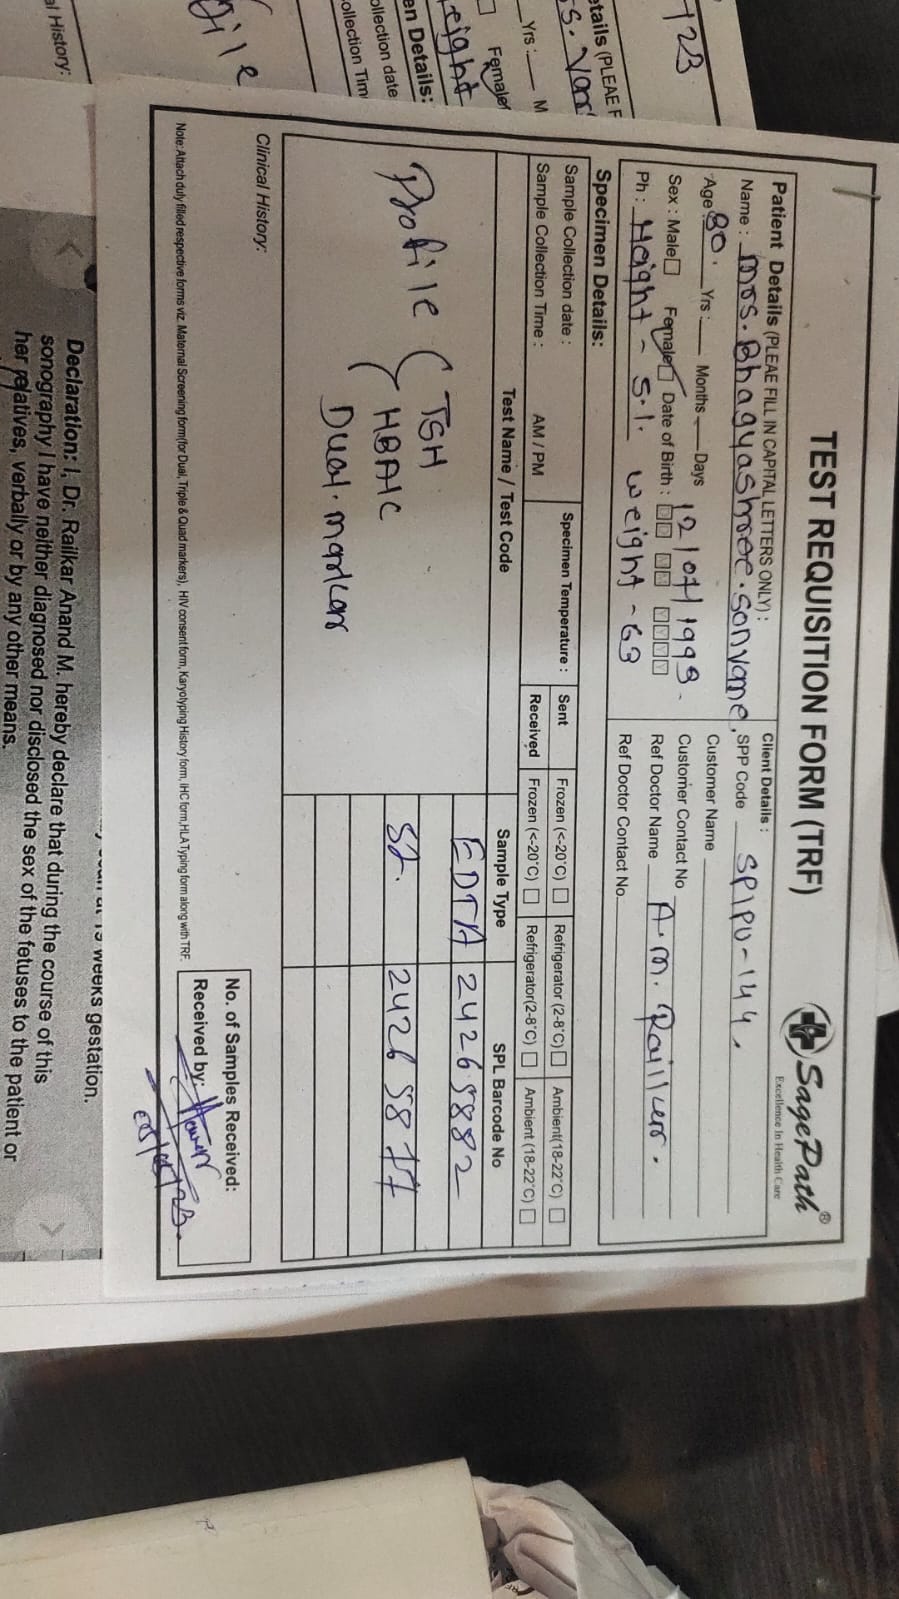 TEST REQUISITION FORM (TRF)
SagePath®
Excellence In Health Care
Patient Details (PLEAE FILL IN CAPITAL LETTERS ONLY) :
Name : mrs. Bhagyashree. Sonvane.
Age 30. Yrs : Months Days
Sex : Male Female Date of Birth : 12/07/1993.
Ph : Height - 5.1. weight - 63
Client Details :
SPP Code SPIPU-144.
Customer Name
Customer Contact No
Ref Doctor Name A.M. Railker.
Ref Doctor Contact No.
Specimen Details:
Sample Collection date :
Sample Collection Time : AM / PM
Specimen Temperature :
Sent Frozen (<-20°C) Refrigerator (2-8°C) Ambient(18-22°C)
Received Frozen (<-20°C) Refrigerator(2-8°C) Ambient (18-22°C)
Test Name / Test Code Sample Type SPL Barcode No
Profile TSH EDTA 24265882
HBA1C
Dual. marker
24265877
Clinical History:
No. of Samples Received:
Received by:
Note: Attach duly filled respective forms viz. Maternal Screening form(for Dual, Triple & Quad markers), HIV consent form, Karyotyping History form, IHC form,HLA Typing form along with TRF.
etails (PLEAE F
Yrs : M
Female
en Details:
ollection date
ollection Tim
al History:
weeks gestation.
Declaration: I, Dr. Railkar Anand M. hereby declare that during the course of this
sonography I have neither diagnosed nor disclosed the sex of the fetuses to the patient or
her relatives, verbally or by any other means.